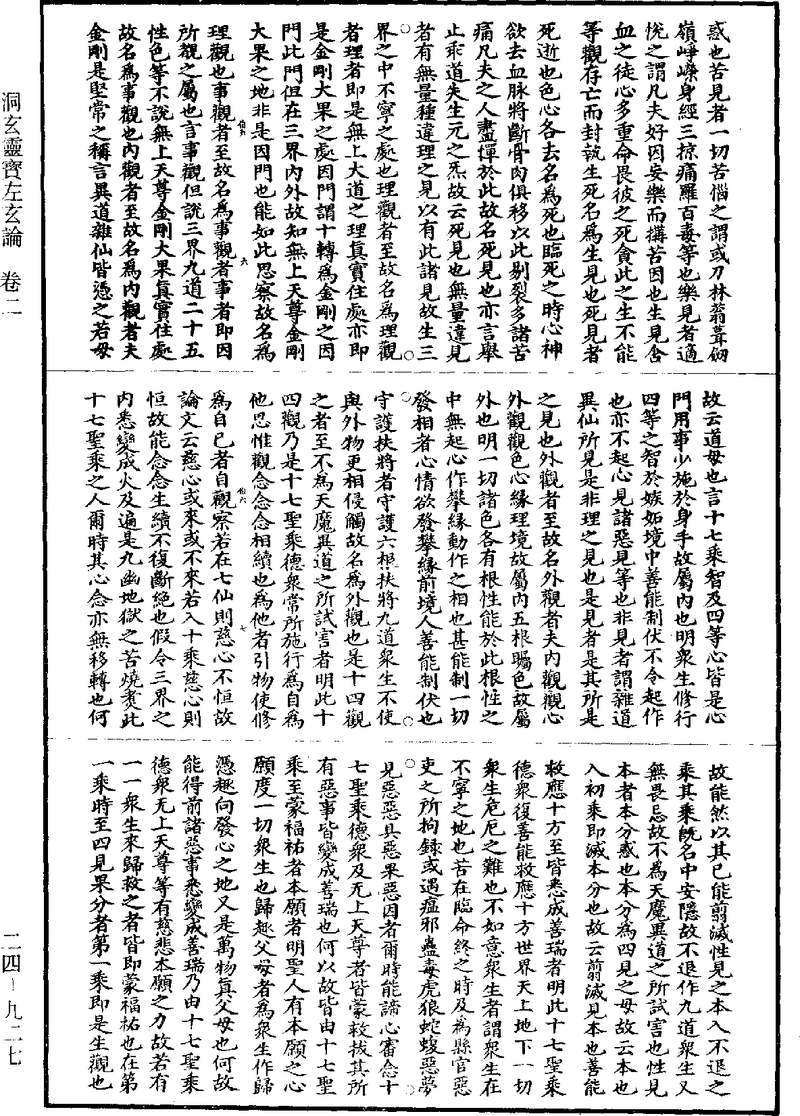 惑也苦見者一切苦惱之謂或刀林翁葺劒
嶺崢嶸身經三掠痛罹百毒等也樂見者適
悅之謂凡夫好因安樂而搆苦因也生見含
血之徒心多重命畏彼之死貪此之生不能
等觀存亡而封執生死名為生見也死見者
死逝也色心各去名為死也臨死之時心神
欲去血脉將斷骨肉俱移以此剔裂多諸苦
痛凡夫之人盡憚於此故名死見也亦言舉
止乖道失生元之炁故云死見也無量違見
者有無量種違理之見以有此諸見故生三
界之中不寧之處也理觀者至故名為理觀
者理者即是無上大道之理真實住處亦即
是金剛大果之處因門謂十轉為金剛之因
門此門但在三界內外故知無上天尊金剛
大果之地非是因門也能如此思察故名為
理觀也事觀者至故名為事觀者事者即因
所觀之屬也言事觀但說三界九道二十五
性色等不說無上天尊金剛大果真實住處
故名為事觀也內觀者至故名為內觀者夫
金剛是堅常之稱言異道雜仙皆憑之若母
故云道母也言十七乘智及四等心皆是心
門用事少施於身手故屬內也明眾生修行
四等之智於嫉妬境中善能制伏不令起作
也亦不起心見諸惡見等也非見者謂雜道
異仙所見是非理之見也是見者是其所是
之見也外觀者至故名外觀者夫內觀觀心
外觀觀色心緣理境故屬內五根矚色故屬
外也明一切諸色各有根性能於此根性之
中無起心作攀緣動作之相也甚能制一切
發相者心情欲發攀緣前境人善能制伏也
守護扶將者守護六根扶將九道眾生不使
與外物更相侵觸故名為外觀也是十四觀
之者至不為天魔異道之所試害者明此十
四觀乃是十七聖乘德眾常所施行為自為
他思惟觀念念念相續也為他者引物使修
為自己者自觀察若在七仙則慈心不恒故
論文云慈心或來或不來若入十乘慈心則
恒故能念念生續不復斷絕也假令三界之
內悉變成火及遍是九幽地獄之苦燒煑此
十七聖乘之人爾時其心念亦無移轉也何
故能然以其已能翦滅性見之本入不退之
乘其乘旣名中安隱故不退作九道眾生又
無畏忌故不為天魔異道之所試害也性見
本者本分惑也本分為四見之母故云本也
入初乘即滅本分也故云翦滅見本也善能
救應十方至皆悉成善瑞者明此十七聖乘
德眾復善能救應十方世界天上地下一切
眾生危厄之難也不如意眾生者謂眾生在
不寧之地也苦在臨命終之時及為縣官惡
吏之所拘錄或遇瘟邪蠱毒虎狼蛇蝮惡夢
見惡惡具惡果惡因者爾時能諦心審念十
七聖乘德眾及无上天尊者皆蒙救拔其所
有惡事皆變成善瑞也何以故皆由十七聖
乘至蒙福祐者本願者明聖人有本願之心
願度一切眾生也歸趣父母者為眾生作歸
憑趣向發心之地又是萬物真父母也何故
能得前諸惡事悉變成善瑞乃由十七聖乘
德眾无上天尊等有慈悲本願之力故若有
一一眾生來歸救之者皆即蒙福祐也在第
一乘時至四見果分者第一乘即是生觀也
洞玄靈寶左玄論 卷二
二四－九二七